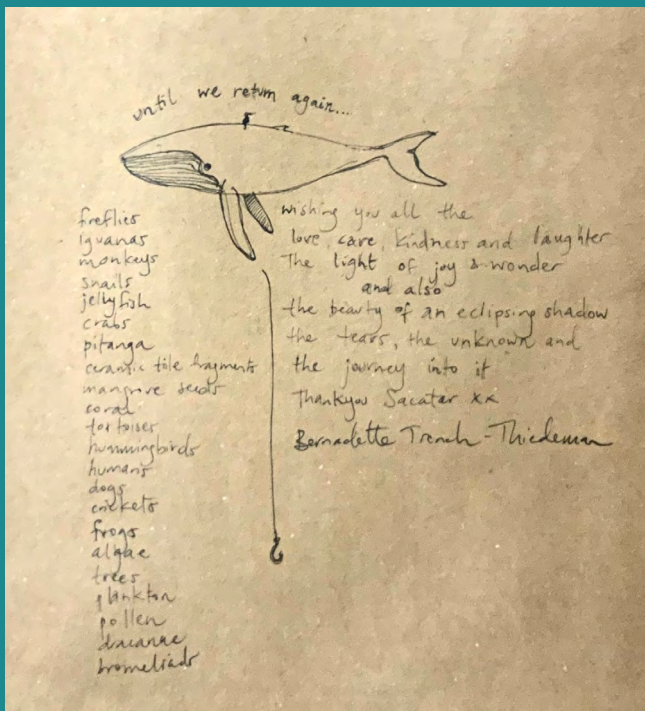 until we return again...
fireflies
iguanas
monkeys
snails
jellyfish
crabs
pitanga
ceramic tile fragments
mangrove seeds
coral
tortoises
hummingbirds
humans
dogs
crickets
frogs
algae
trees
plankton
pollen
dracanae
bromeliads
wishing you all the
love, care, kindness and laughter
The light of joy & wonder
and also
the beauty of an eclipsing shadow
the tears, the unknown and
the journey into it
Thankyou Sacatar xx
Bernadette Trench-Thiedeman